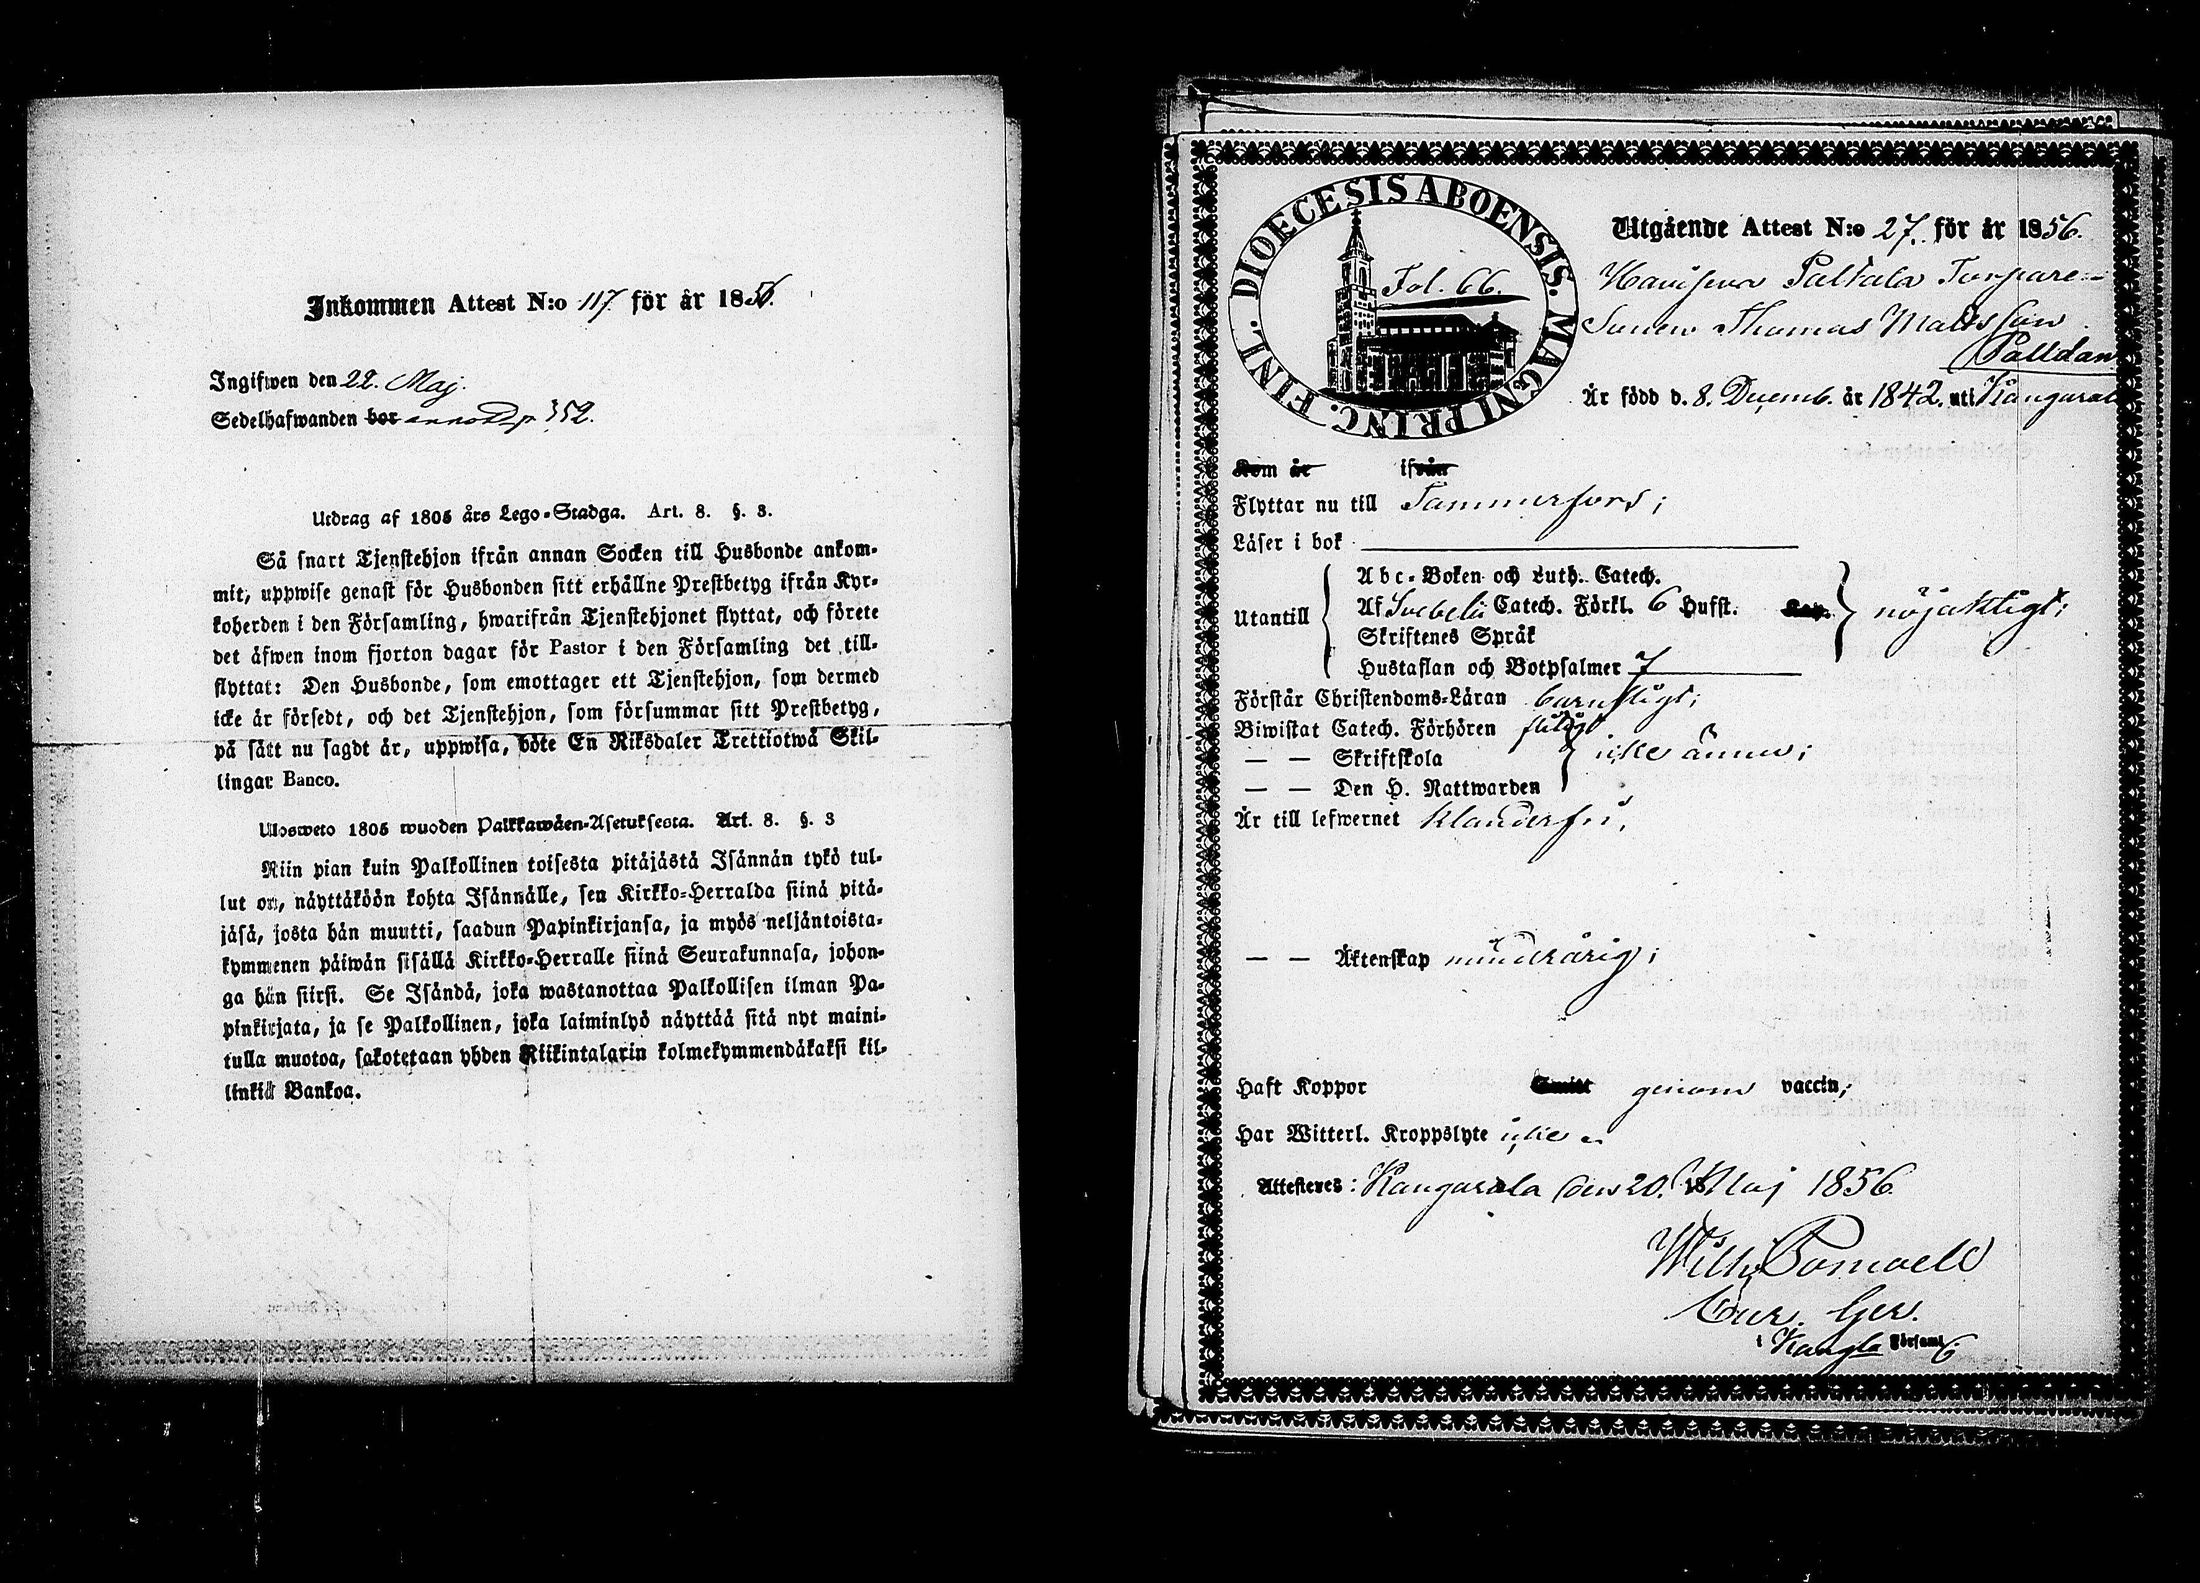 Inkommen Attest N:o 117. för år 1856.
Ingifwen den 22. Maj.
Sedelhafwanden bor annot. p 352.
Utdrag af 1805 års Lego-Stadga. Art. 8. §. 3.
Så snart Tjenstehjon ifrån annan Socken till Husbonde ankom-
mit, uppwise genast för Husbonden sitt erhållne Prestbetyg ifrån Kyr-
koherden i den Församling, hwarifrån Tjenstehjonet flyttat, och förete
det äfwen inom fjorton dagar för Pastor i den Församling det till-
flyttat: Den Husbonde, som emottager ett Tjenstehjon, som dermed
icke är försedt, och det Tjenstehjon, som försummar sitt Prestbetyg,
på sätt nu sagdt är, uppwisa, böte En Riksdaler Trettiotwå Skil-
lingar Banco.
Ulosweto 1805 wuoden Palkkawäen-Asetuksesta. Art. 8. §. 3
Niin pian kuin Palkollinen toisesta pitäjästä Isännän tykö tul-
lut on, näyttäköön kohta Isännälle, sen Kirkko-Herralda siinä pitä-
jäsä, josta hän muutti, saadun Papinkirjansa, ja myös neljäntoista-
kymmenen päiwän sisällä Kirkko-Herralle siinä Seurakunnasa, johon-
ga hän siirsi. Se Isändä, joka wastanottaa Palkollisen ilman Pa-
pinkirjata, ja se Palkollinen, joka laiminlyö näyttää sitä nyt maini-
tulla muotoa, sakotetaan yhden Riikintalarin kolmekymmendäkaksi kil-
linkiä Bankoa.
DIOECESIS ABOENSIS. MAGNI PRINC. FINL.
Fol. 66.
Utgående Attest N:o 27. för år 1856.
Paltala Torpare-
Sonen Thomas Matts son
Palldan
Är född d. 8. Decemb. år 1842. uti Kangasala
Kom år ifrån
Flyttar nu till Tammerfors;
Läser i bok
Utantill
Abc-Boken och Luth. Catech.
Af Svebelii Catech. Förkl. 6 Hufst. Kap.
Skriftenes Språk
Hustaflan och Botpsalmer 7
nöjaktigt;
Förstår Christendoms-Läran barnsligt;
Biwistat Catech. Förhören flitigt
— — Skriftskola
— — Den H. Nattwarden
icke ännu;
Är till lefwernet klanderfri,
— — Äktenskap minderårig;
Haft Koppor Smitt genom vaccin;
Har Witterl. Kroppslyte icke
Attesteres: Kangasala den 20. Maj 1856.
Wilh. Pomoell
Cur. Ger.
i Kangla Församl.